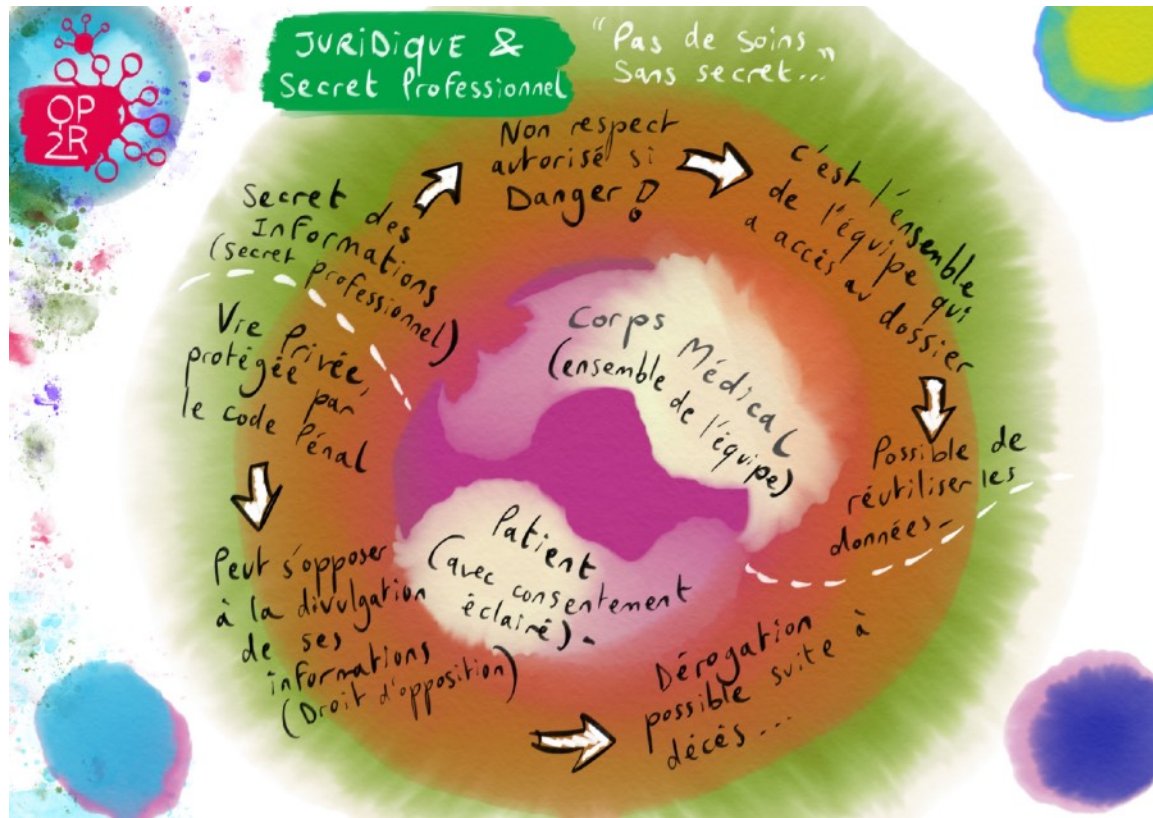 OP
2R
JURiDiQUE &
Secret Professionnel
"Pas de Soins
Sans secret..."
Secret des
Informations
(secret professionnel)
Non respect
autorisé si
Danger !
c'est l'ensemble
de l'équipe qui
a accès au dossier
Possible de
réutiliser les
données_
Corps Médical
(ensemble de l'équipe)
Vie Privée,
protégée par
le code Pénal
Peut s'opposer
à la divulgation
de ses
informations
(Droit d'opposition)
Dérogation
possible suite à
décès...
Patient
(avec consentement
éclairé)_